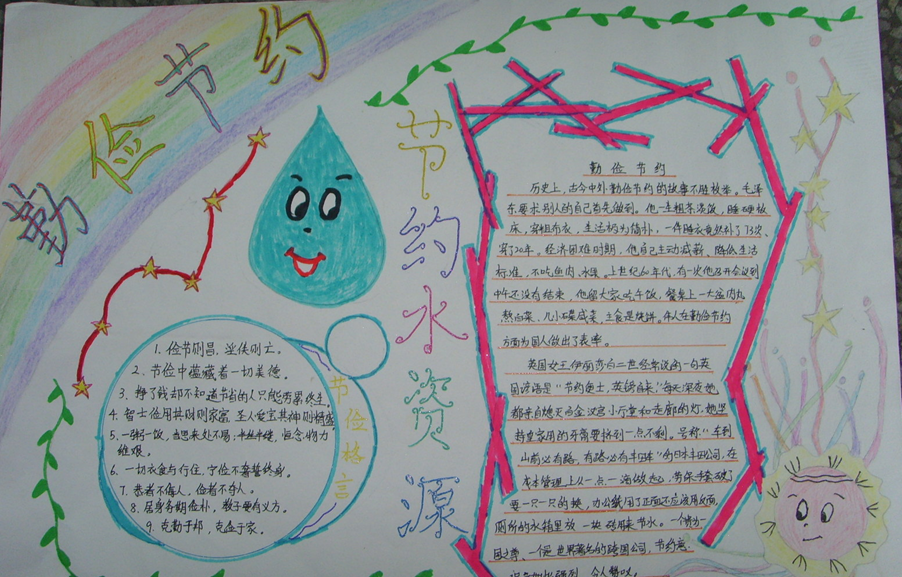 勤俭节约
节约水资源
节俭格言
1. 俭节则昌，淫佚则亡。
2. 节俭中蕴藏着一切美德。
3. 挣了钱却不知道节省的人只能劳累终生。
4. 智士俭用其财则家富 圣人爱宝其神则精盛
5. 一粥一饭，当思来处不易；半丝半缕，恒念物力
维艰。
6. 一切衣食与行住，宁俭不奢誓终身。
7. 恭者不侮人，俭者不夺人。
8. 居身务期俭朴，教子要有义方。
9. 克勤于邦，克俭于家。
勤俭节约
历史上，古今中外勤俭节约的故事不胜枚举。毛泽
东要求别人的自己首先做到。他一生粗茶淡饭，睡硬板
床，穿粗布衣，生活极为简朴，一件睡衣竟然补了73次、
穿了20年。经济困难时期，他自己主动减薪、降低生活
标准，不吃鱼肉、水果。上世纪60年代，有一次他召开会议到
中午还没有结束，他留大家吃午饭，餐桌上一大盆肉丸
熬白菜，几小碟咸菜，主食是烧饼。伟人在勤俭节约
方面为国人做出了表率。
英国女王伊丽莎白二世经常说的一句英
国谚语是"节约便士，英镑自来"，每天深夜她
都亲自熄灭白金汉宫小厅堂和走廊的灯，她坚
持皇家用的牙膏要挤到一点不剩。号称"车到
山前必有路，有路必有丰田车"的日本丰田公司，在
成本管理上从一点一滴做起，劳保手套破了
要一只一只的换，办公纸用了正面还应该用反面，
厕所的水箱里放一块砖用来节水。一个
国之尊、一个世界著名的跨国公司，节约意
识